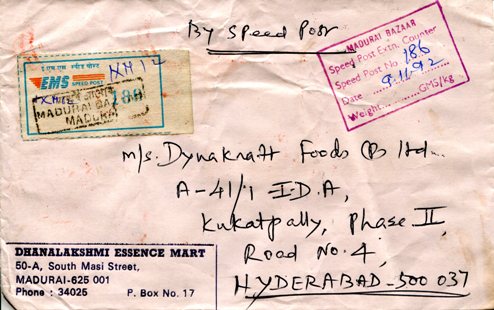 By Speed Post
MADURAI BAZAAR
Speed Post Extn. Counter
Speed Post No. 186
Date 9.11.92
Weight GMS/kg.
EMS
SPEED POST
XM12
186
MADURAI BA
MADURAI
M/s. Dynakraft Foods (P) Ltd.
A-41/1 I.D.A,
Kukatpally, Phase II,
Road No. 4,
HYDERABAD-500 037
DHANALAKSHMI ESSENCE MART
50-A, South Masi Street,
MADURAI-625 001
Phone : 34025 P. Box No. 17